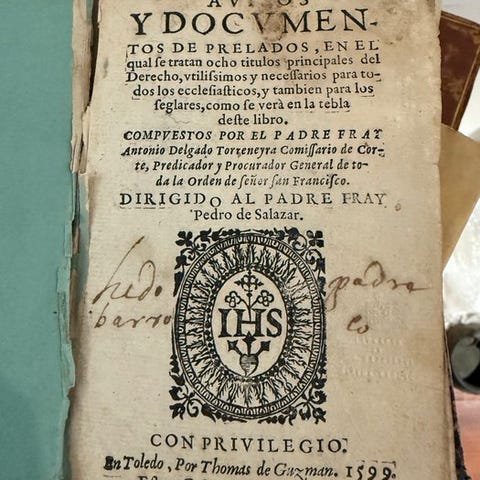 AVISOS
Y DOCVMEN-
TOS DE PRELADOS, EN EL
qual se tratan ocho titulos principales del
Derecho, vtilissimos y necessarios para to-
dos los ecclesiasticos, y tambien para los
seglares, como se verà en la tebla
deste libro.
COMPVESTOS POR EL PADRE FRAY
Antonio Delgado Torreneyra Comissario de Cor-
te, Predicador y Procurador General de to-
da la Orden de señor san Francisco.
DIRIGIDO AL PADRE FRAY
Pedro de Salazar.
padre
barro
IHS
CON PRIVILEGIO.
En Toledo, Por Thomas de Guzman. 1599.